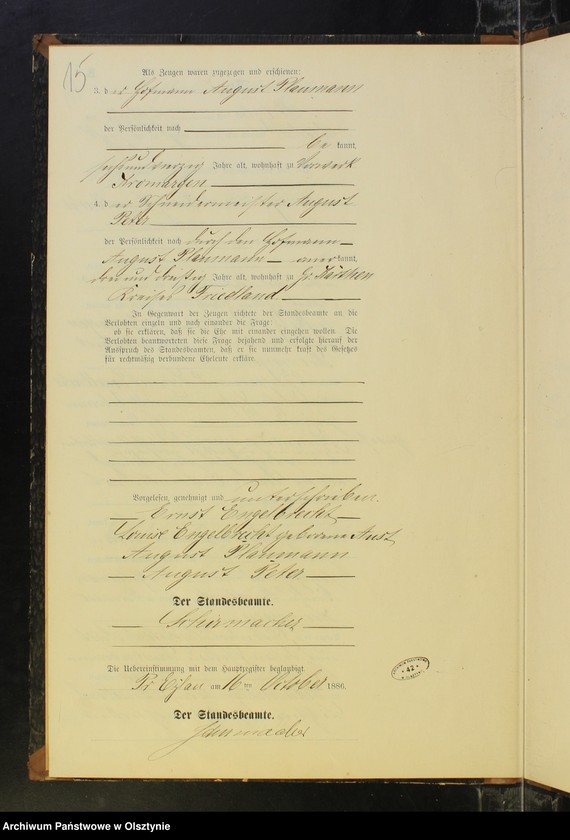 15
Als Zeugen waren zugezogen und erschienen:
3. der Hofmann August Plaumann
der Persönlichkeit nach
be kannt,
sechsundvierzig Jahre alt, wohnhaft zu Vorwerk
Kromargen
4. der Schneidermeister August
Peter
der Persönlichkeit nach durch den Hofmann
August Plaumann anerkannt,
dreiunddreißig Jahre alt, wohnhaft zu Gr. Kärthen
Kreises Friedland
In Gegenwart der Zeugen richtete der Standesbeamte an die
Verlobten einzeln und nach einander die Frage:
ob sie erklären, daß sie die Ehe mit einander eingehen wollen. Die
Verlobten beantworteten diese Frage bejahend und erfolgte hierauf der
Ausspruch des Standesbeamten, daß er sie nunmehr kraft des Gesetzes
für rechtmäßig verbundene Eheleute erkläre.
Vorgelesen, genehmigt und unterschrieben.
Ernst Engelbrecht
Louise Engelbrecht geborene Aust
August Plaumann
August Peter
Der Standesbeamte.
Schirmacher
Die Uebereinstimmung mit dem Hauptregister beglaubigt
Pr. Eylau am 16ten October 1886.
Der Standesbeamte.
Schirmacher
42
Archiwum Państwowe w Olsztynie